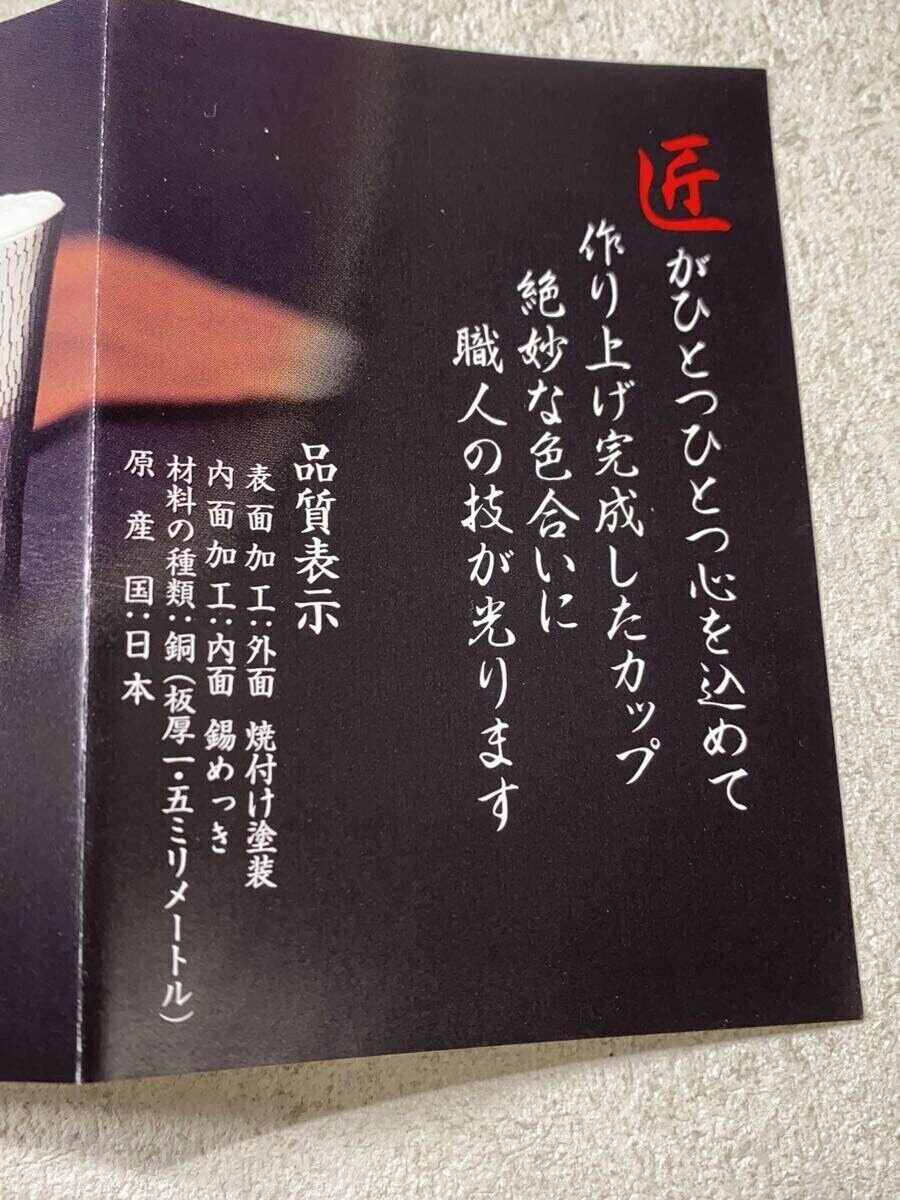 匠がひとつひとつ心を込めて
作り上げ完成したカップ
絶妙な色合いに
職人の技が光ります
品質表示
表面加工:外面 焼付け塗装
内面加工:内面 錫めっき
材料の種類:銅(板厚一・五ミリメートル)
原産国:日本